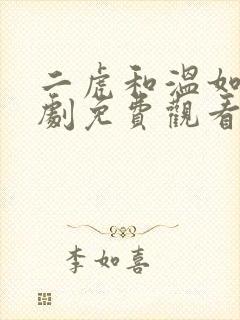 二虎和溫如
劇免費觀看
李如喜